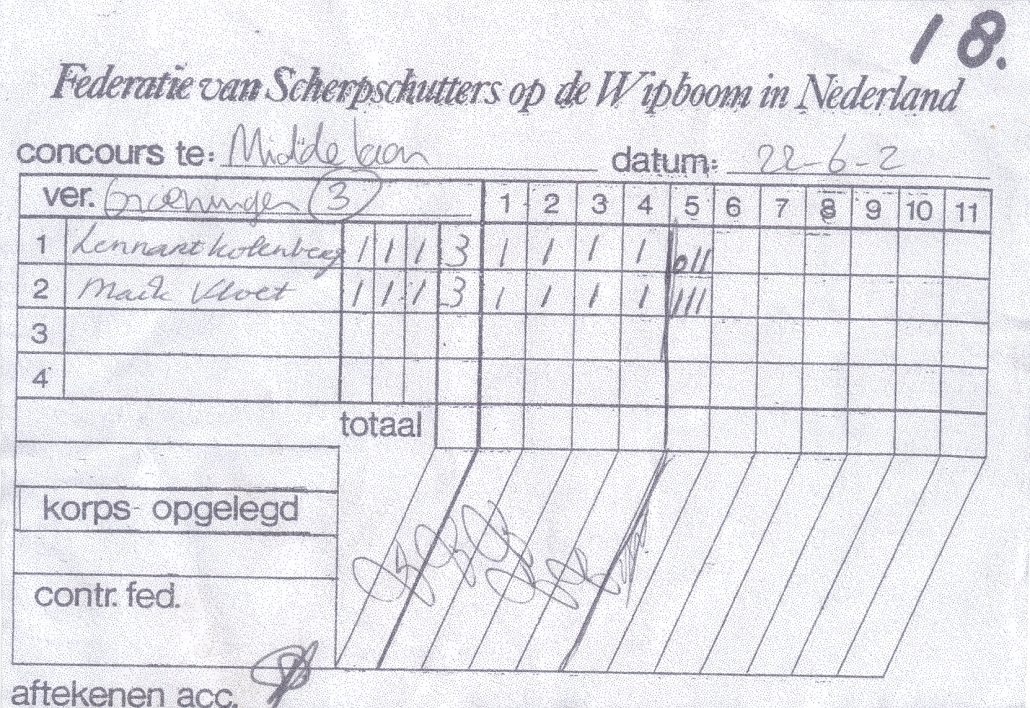 18.
Federatie van Scherpschutters op de Wipboom in Nederland
concours te: Middelaar datum: 22-6-2
ver. Groeningen 3 1 2 3 4 5 6 7 8 9 10 11
1 Lennart Kotenberg 1 1 1 3 1 1 1 1 011
2 Maik Vloet 1 1 1 3 1 1 1 1 111
3
4
totaal
korps opgelegd
contr. fed.
aftekenen acc.